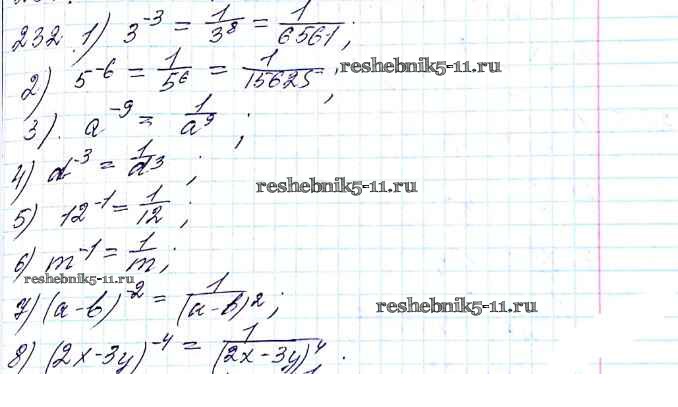 232. 1) 3^-3 = 1/3^8 = 1/6561;
2) 5^-6 = 1/5^6 = 1/15625; reshebnik5-11.ru
3). a^-9 = 1/a^9;
4) d^-3 = 1/d^3;
reshebnik5-11.ru
5) 12^-1 = 1/12;
6) m^-1 = 1/m;
reshebnik5-11.ru
7) (a-b)^-2 = 1/(a-b)^2; reshebnik5-11.ru
8) (2x-3y)^-4 = 1/(2x-3y)^4.